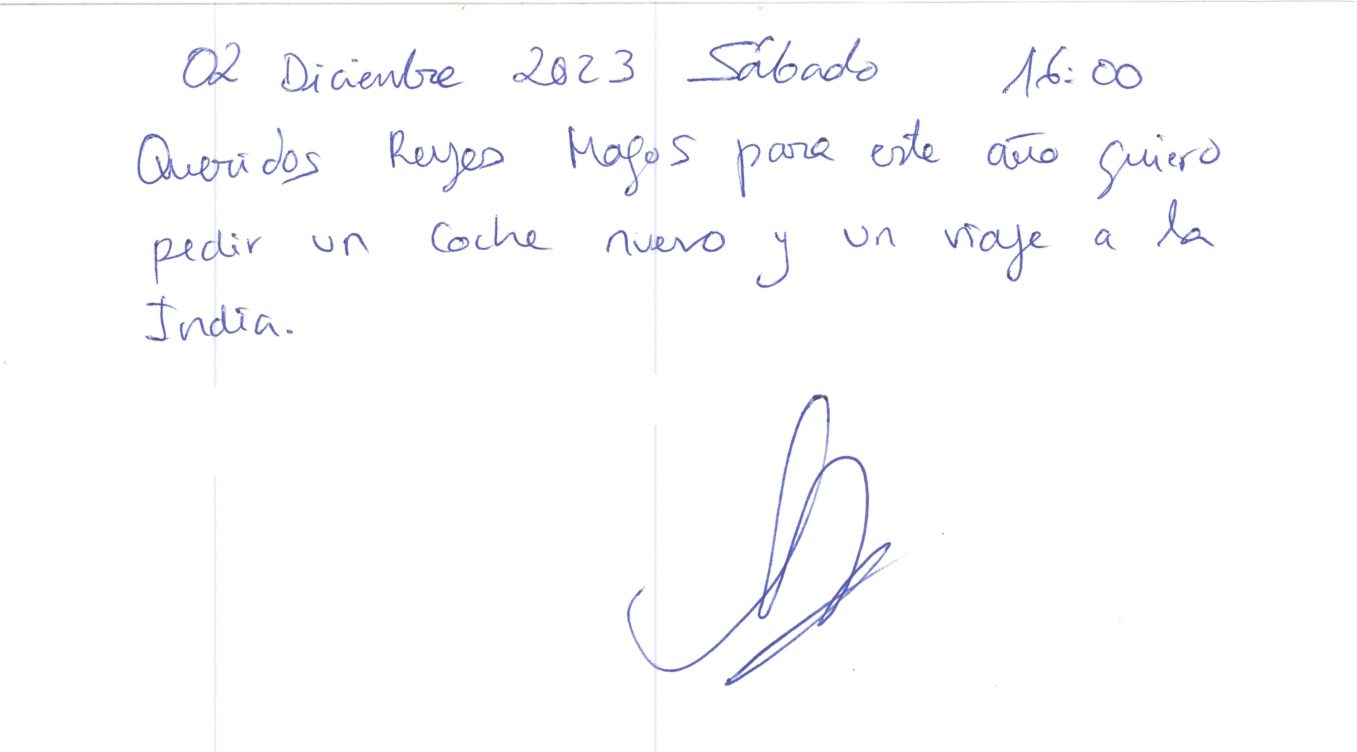 02 Diciembre 2023 Sábado 16:00
Queridos Reyes Magos para este año quiero
pedir un coche nuevo y un viaje a la
India.